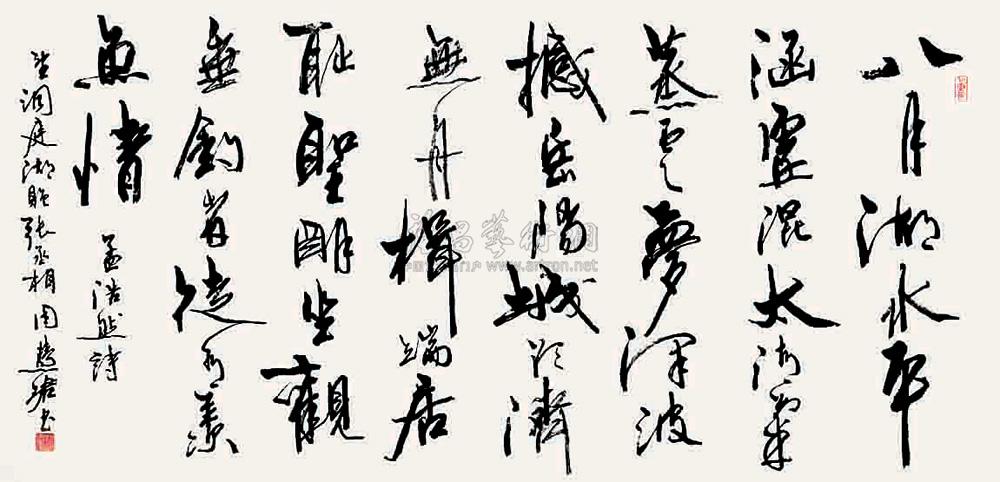 八月湖水平
涵虛混太清氣
蒸雲夢澤波
撼岳陽城欲濟
無舟楫端居
耻聖明坐觀
垂釣者徒有羨
魚情
孟浩然詩
望洞庭湖贈張丞相周慧珺書
雅昌藝術網
www.artron.net